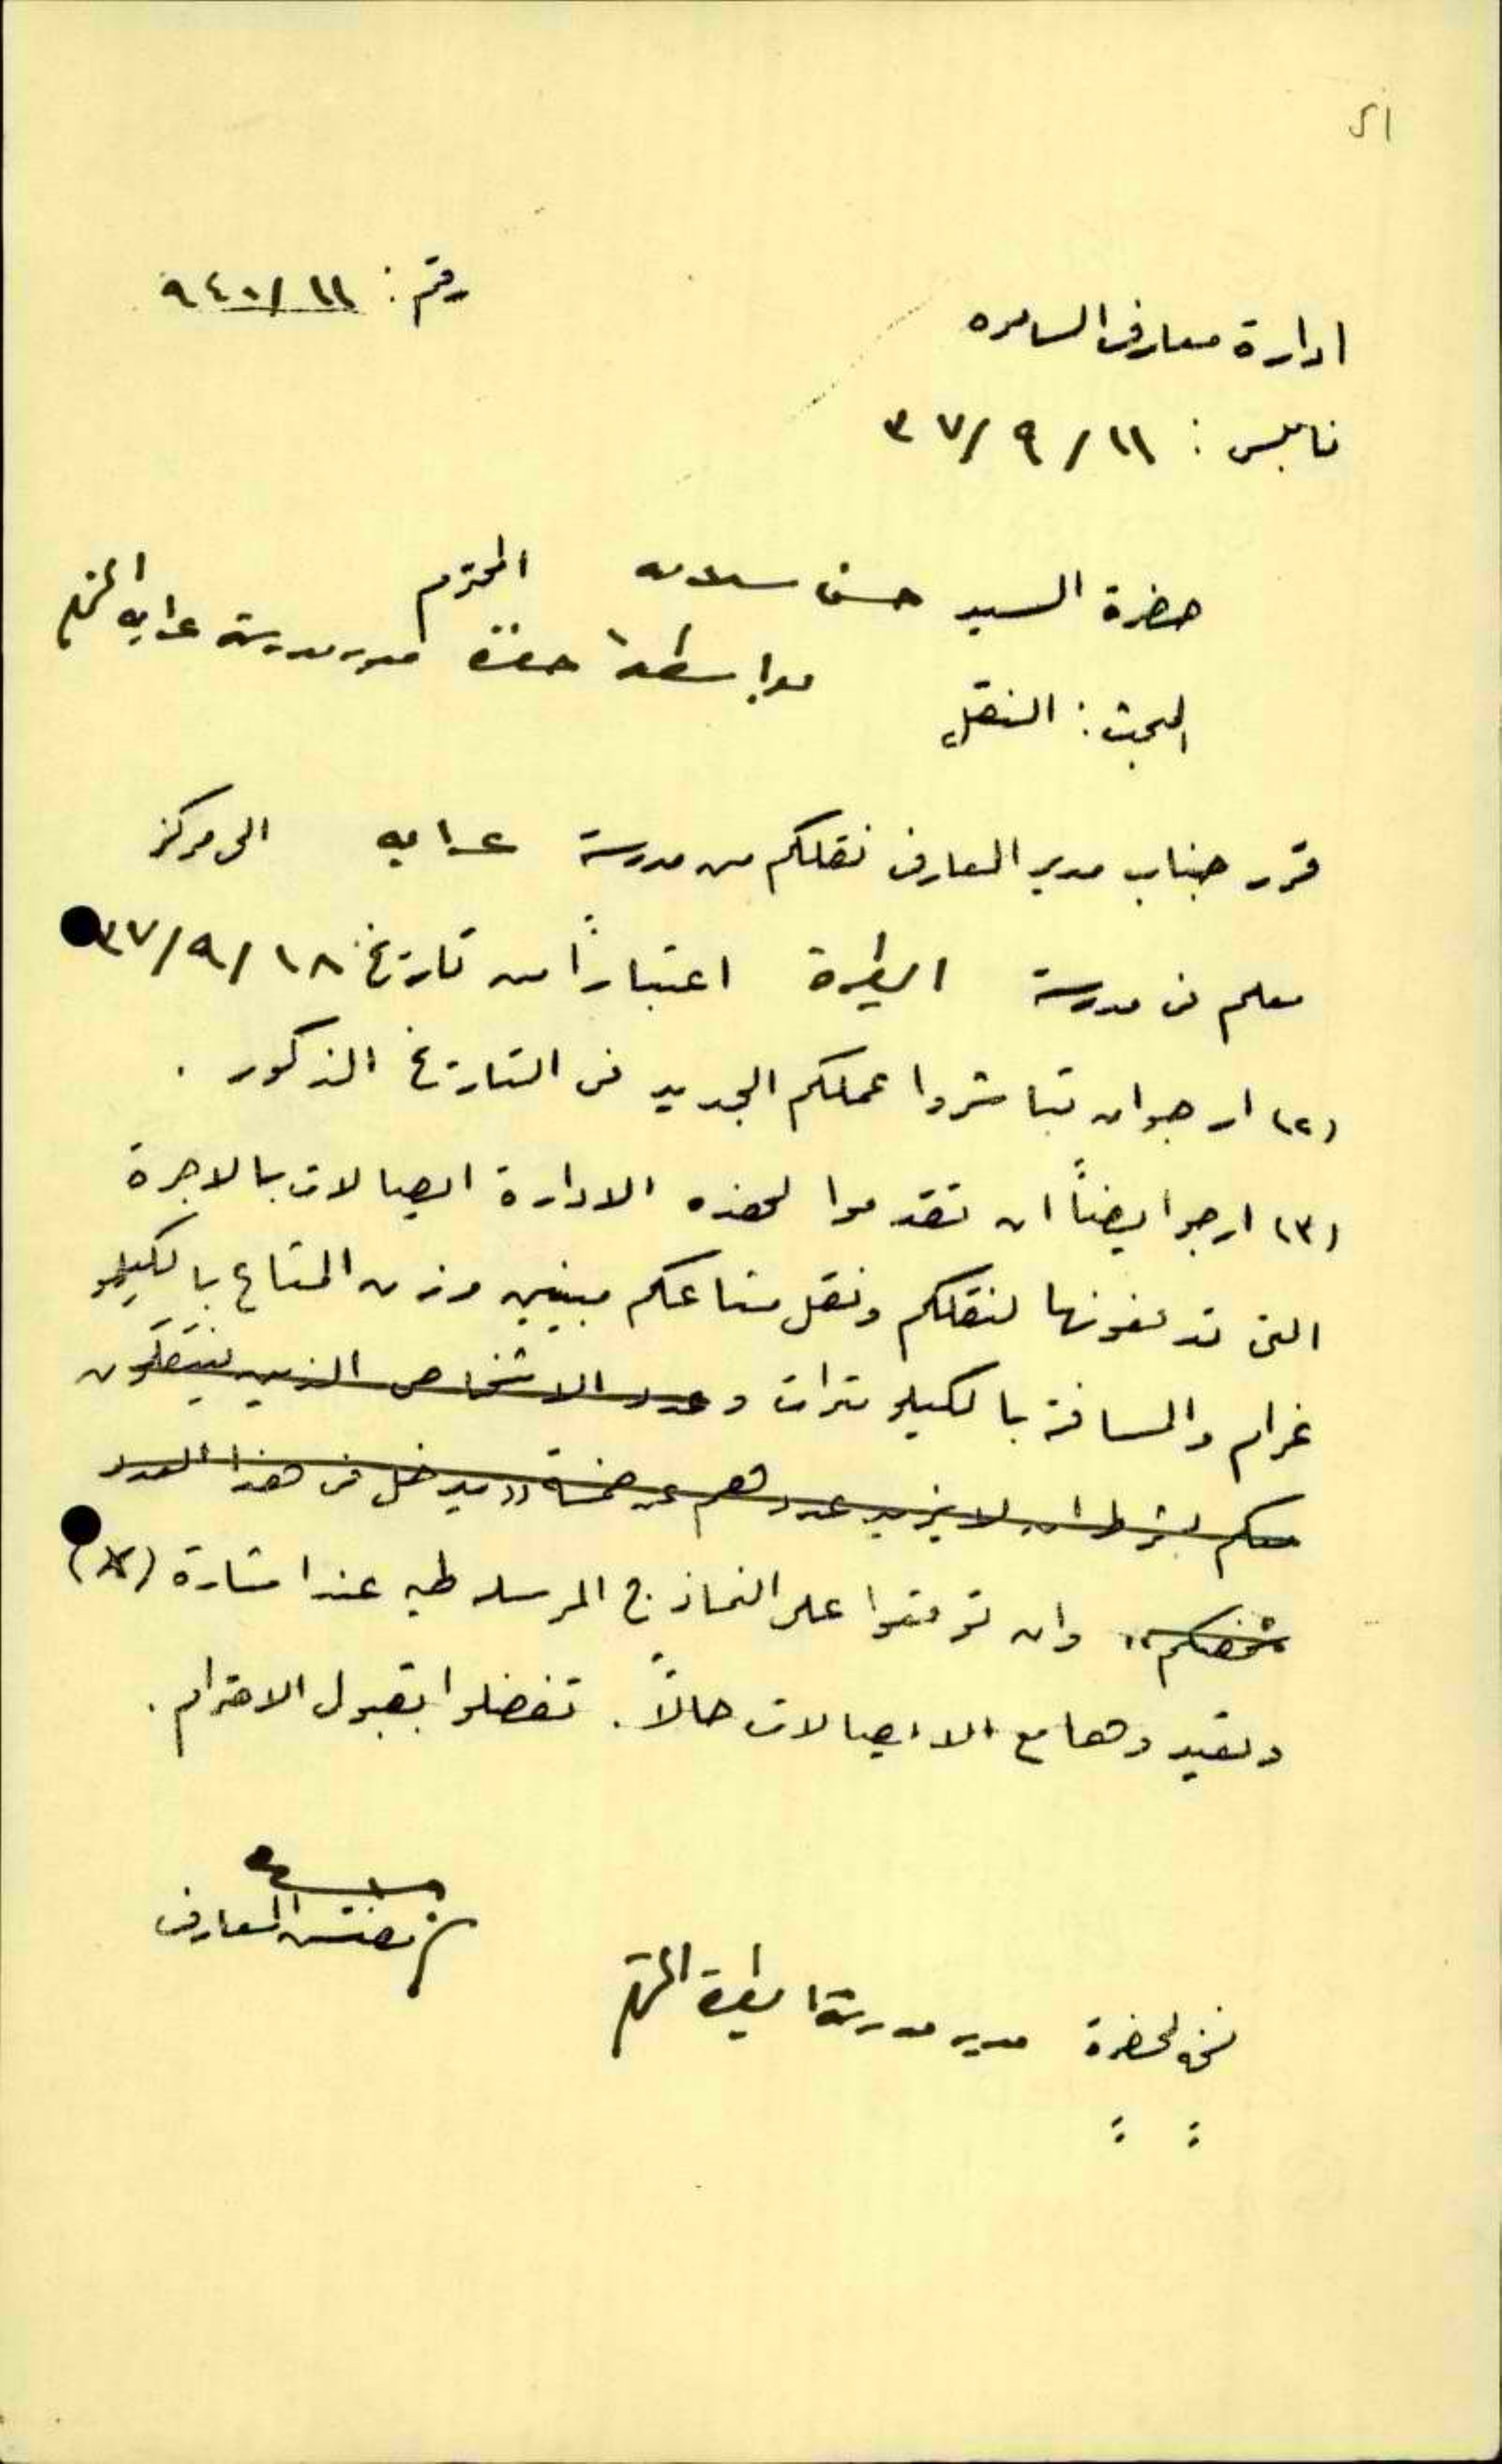 رقم: ٩٤٠/١١
ادارة معارف السامره
نابلس: ١١/٩/٣٧
حضرة السيد حسن سلامه المحترم
بواسطة حضرة مدير مدرسة عرابه المحترم
البحث: النقل
قرر جناب مدير المعارف نقلكم من مدرسة عرابه الى مركز
معلم في مدرسة الطيرة اعتباراً من تاريخ ١٨/٩/٣٧
(٢) ارجو ان تباشروا عملكم الجديد في التاريخ المذكور .
(٣) ارجو ايضاً ان تقدموا لهذه الادارة ايصالات بالاجرة
التي تدفعونها لنقلكم ونقل متاعكم مبينين وزن المتاع بالكيلو
غرام والمسافة بالكيلومترات وعدد الاشخاص الذين ينتقلون
معكم بشرط ان لا يزيد عددهم عن خمسة ((يدخل في هذا العدد
شخصكم)) وان توقعوا على النماذج المرسله طيه عند اشارة (X)
وتعيدوها مع الايصالات حالاً. تفضلوا بقبول الاحترام.
مفتش المعارف
نسخة لحضرة مدير مدرسة الطيرة المحترم